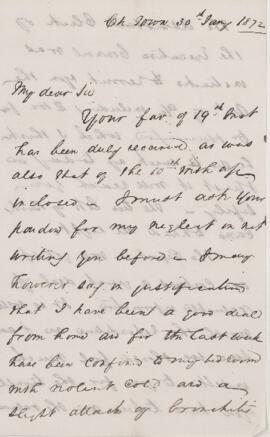 Ch Town 30th Jany 1872
My dear Sir
Your fav. of 19th Inst
has been duly received as was
also that of the 10th with
inclosed – I must ask your
pardon for my neglect in not
writing you before – I may
however say in justification
that I have been a good deal
from home and for the last week
have been confined to my bedroom
with violent cold and a
slight attack of bronchitis